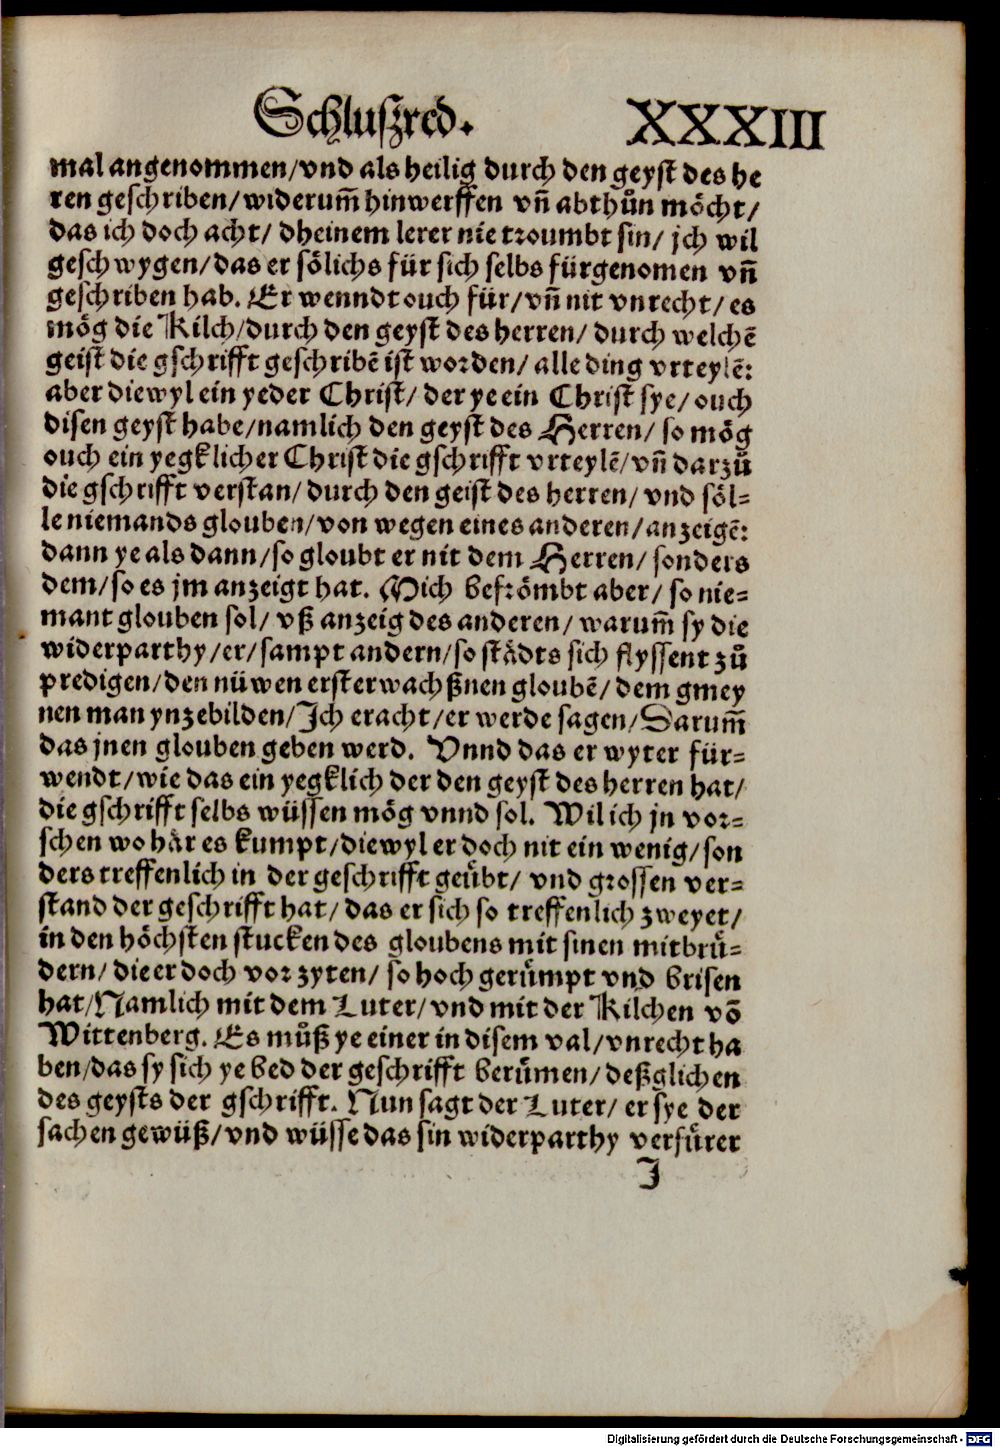 Schluszred. XXXIII
mal angenommen/vnd als heilig durch den geyst des he
ren geschriben/widerum̃ hinwerffen vñ abthůn möcht/
das ich doch acht/ dheinem lerer nie troumbt sin/ jch wil
geschwygen/das er sölichs für sich selbs fürgenomen vñ
geschriben hab. Er wenndt ouch für/vñ nit vnrecht/es
mög die Kilch/durch den geyst des herren/ durch welchẽ
geist die gschrifft geschribẽ ist worden/ alle ding vrteylẽ:
aber diewyl ein yeder Christ/ der ye ein Christ sye/ ouch
disen geyst habe/namlich den geyst des Herren/ so mög
ouch ein yegklicher Christ die gschrifft vrteylẽ/vñ darzů
die gschrifft verstan/ durch den geist des herren/ vnd söl-
le niemands glouben/von wegen eines anderen/anzeigẽ:
dann ye als dann/so gloubt er nit dem Herren/ sonders
dem/so es jm anzeigt hat. Mich befrömbt aber/ so nie-
mant glouben sol/ vß anzeig des anderen/ warum̃ sy die
widerparthy/er/sampt andern/so städts sich flyssent zů
predigen/den nüwen erst erwachßnen gloubẽ/ dem gmey
nen man ynzebilden/Ich eracht/er werde sagen/Darum̃
das jnen glouben geben werd. Vnnd das er wyter für-
wendt/wie das ein yegklich der den geyst des herren hat/
die gschrifft selbs wüssen mög vnnd sol. Wil ich jn vor-
schen wo här es kumpt/diewyl er doch nit ein wenig/son
ders treffenlich in der geschrifft geübt/ vnd grossen ver-
stand der geschrifft hat/ das er sich so treffenlich zweyet/
in den höchsten stucken des gloubens mit sinen mitbrü-
dern/ die er doch vor zyten/ so hoch gerümpt vnd brisen
hat/Namlich mit dem Luter/vnd mit der Kilchen võ
Wittenberg. Es můß ye einer in disem val/vnrecht ha
ben/das sy sich ye bed der geschrifft berümen/deßglichen
des geysts der gschrifft. Nun sagt der Luter/ er sye der
sachen gewüß/vnd wüsse das sin widerparthy verfürer
J
Digitalisierung gefördert durch die Deutsche Forschungsgemeinschaft - DFG